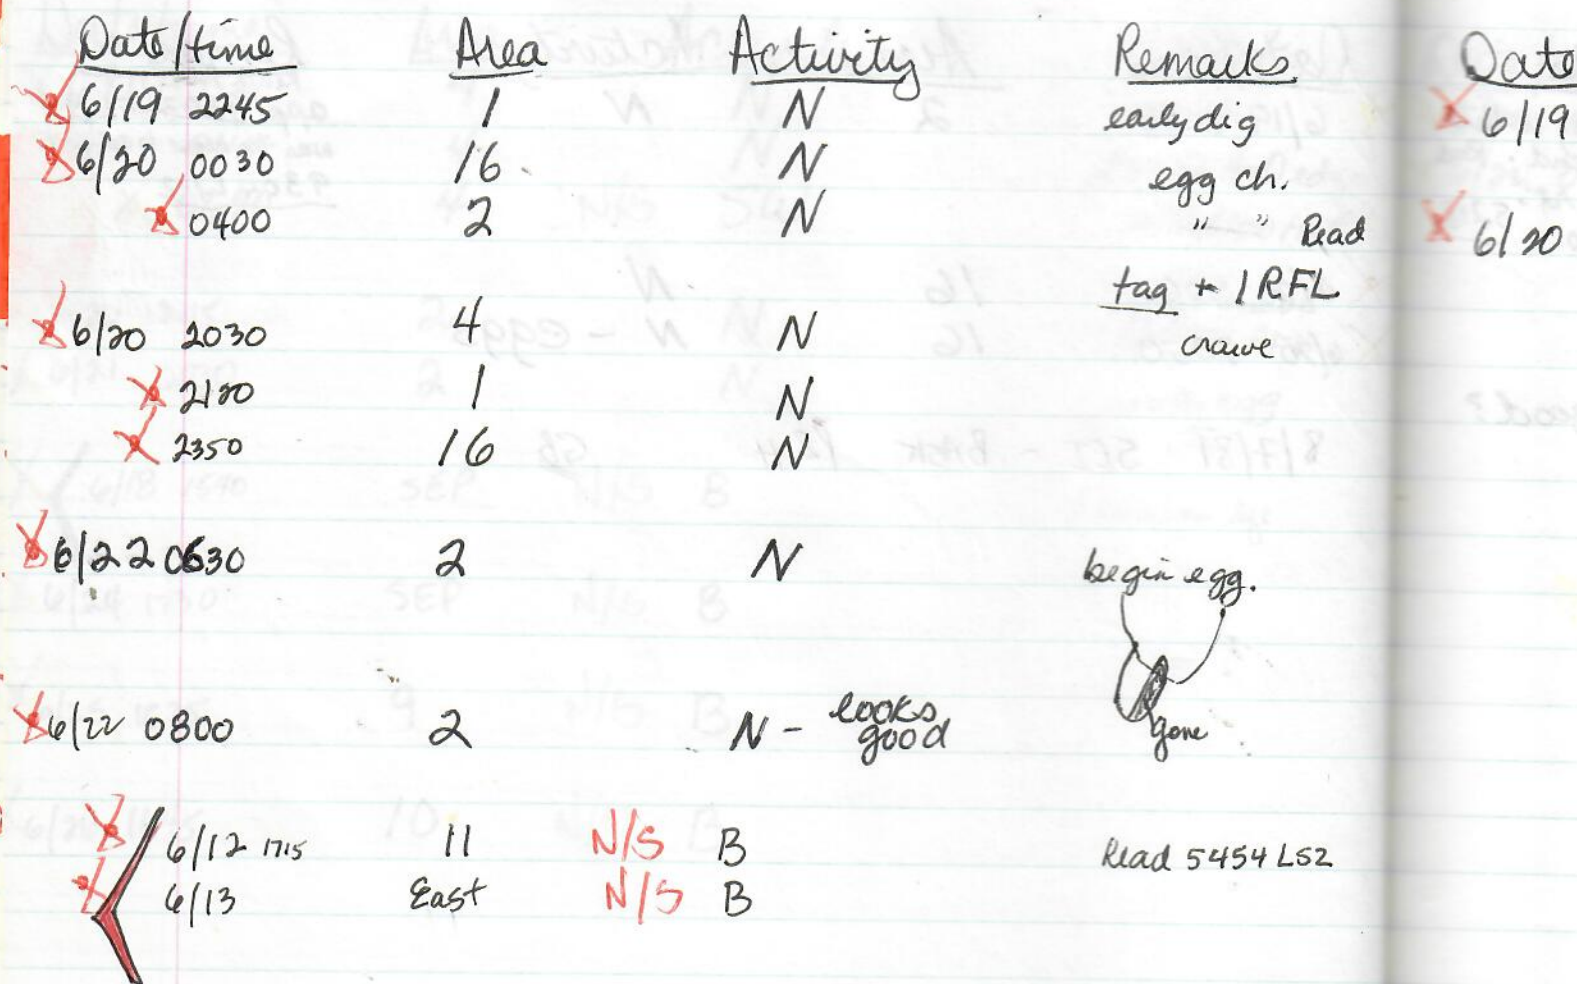 Date/time Area Activity Remarks Date
6/19 2245 1 N early dig 6/19
6/20 0030 16 N egg ch.
0400 2 N " " Read 6/20
tag + 1RFL
6/20 2030 4 N
2120 1 N
2350 16 N
6/22 0630 2 N begin egg.
6/22 0800 2 N - looks good gone
6/12 1715 11 N/S B Read 5454 LS2
6/13 East N/S B